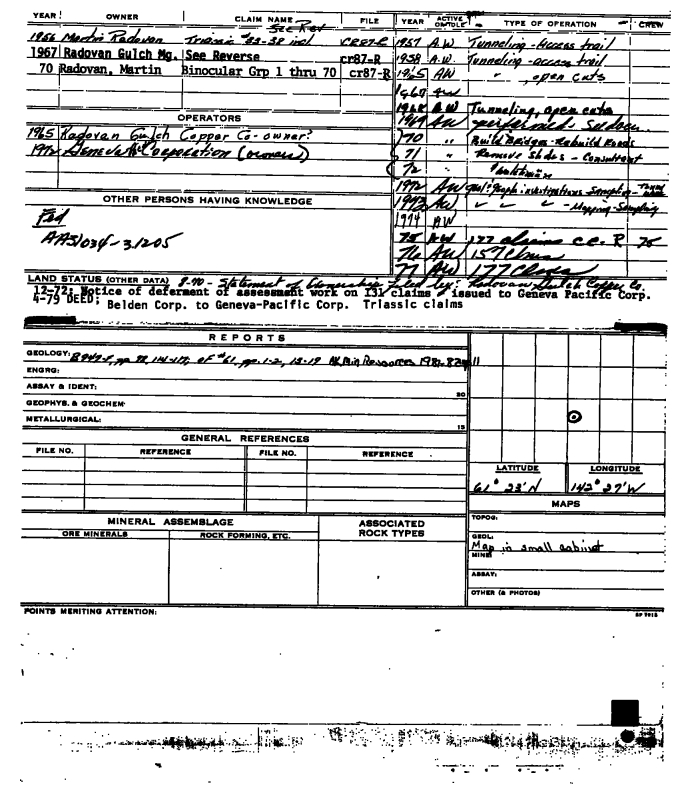 YEAR OWNER CLAIM NAME FILE YEAR ACTIVE OR IDLE TYPE OF OPERATION CREW
See Rev
1956 Martin Radovan Triassic #33-38 incl CR87-R 1957 A.W. Tunneling - Access trail
1967 Radovan Gulch Mg. See Reverse cr87-R 1958 A.W. Tunneling - access trail
70 Radovan, Martin Binocular Grp 1 thru 70 cr87-R 1965 AW " , open cuts
1967 AW
1968 AW Tunneling, open cuts
OPERATORS 1969 AW performed
1965 Radovan Gulch Copper Co-owner? 70 " Build Bridges - Rebuild Roads
1972 Geneva Pacific Corporation (owners) 71 " Remove Slides - Consultant
72 "
1972 AW Sampling
OTHER PERSONS HAVING KNOWLEDGE 1973 AW " " " - Mapping - Sampling
Fed 1974 AW
AA31034-31205 75 AW 177 claims C.C. R 75
76 AW 157 Clms
77 AW 177 Clms
LAND STATUS (OTHER DATA) 8-70 - Statement of Ownership filed by: Radovan Gulch Copper Co.
12-72; Notice of deferment of assessment work on 131 claims issued to Geneva Pacific Corp.
4-79 DEED; Belden Corp. to Geneva-Pacific Corp. Triassic claims
REPORTS
GEOLOGY: B 947-F, pp. 141-117; OF #61, pp. 1-2, 13-19 AK Min Resources 1981-82 11
ENGRG:
ASSAY & IDENT: 20
GEOPHYS. & GEOCHEM:
METALLURGICAL: 15
GENERAL REFERENCES
FILE NO. REFERENCE FILE NO. REFERENCE
LATITUDE LONGITUDE
61° 23'N 142° 27'W
MAPS
MINERAL ASSEMBLAGE ASSOCIATED ROCK TYPES TOPOG:
ORE MINERALS ROCK FORMING, ETC. GEOL:
Map in small cabinet
MINE:
ASSAY:
OTHER (& PHOTOS)
POINTS MERITING ATTENTION: